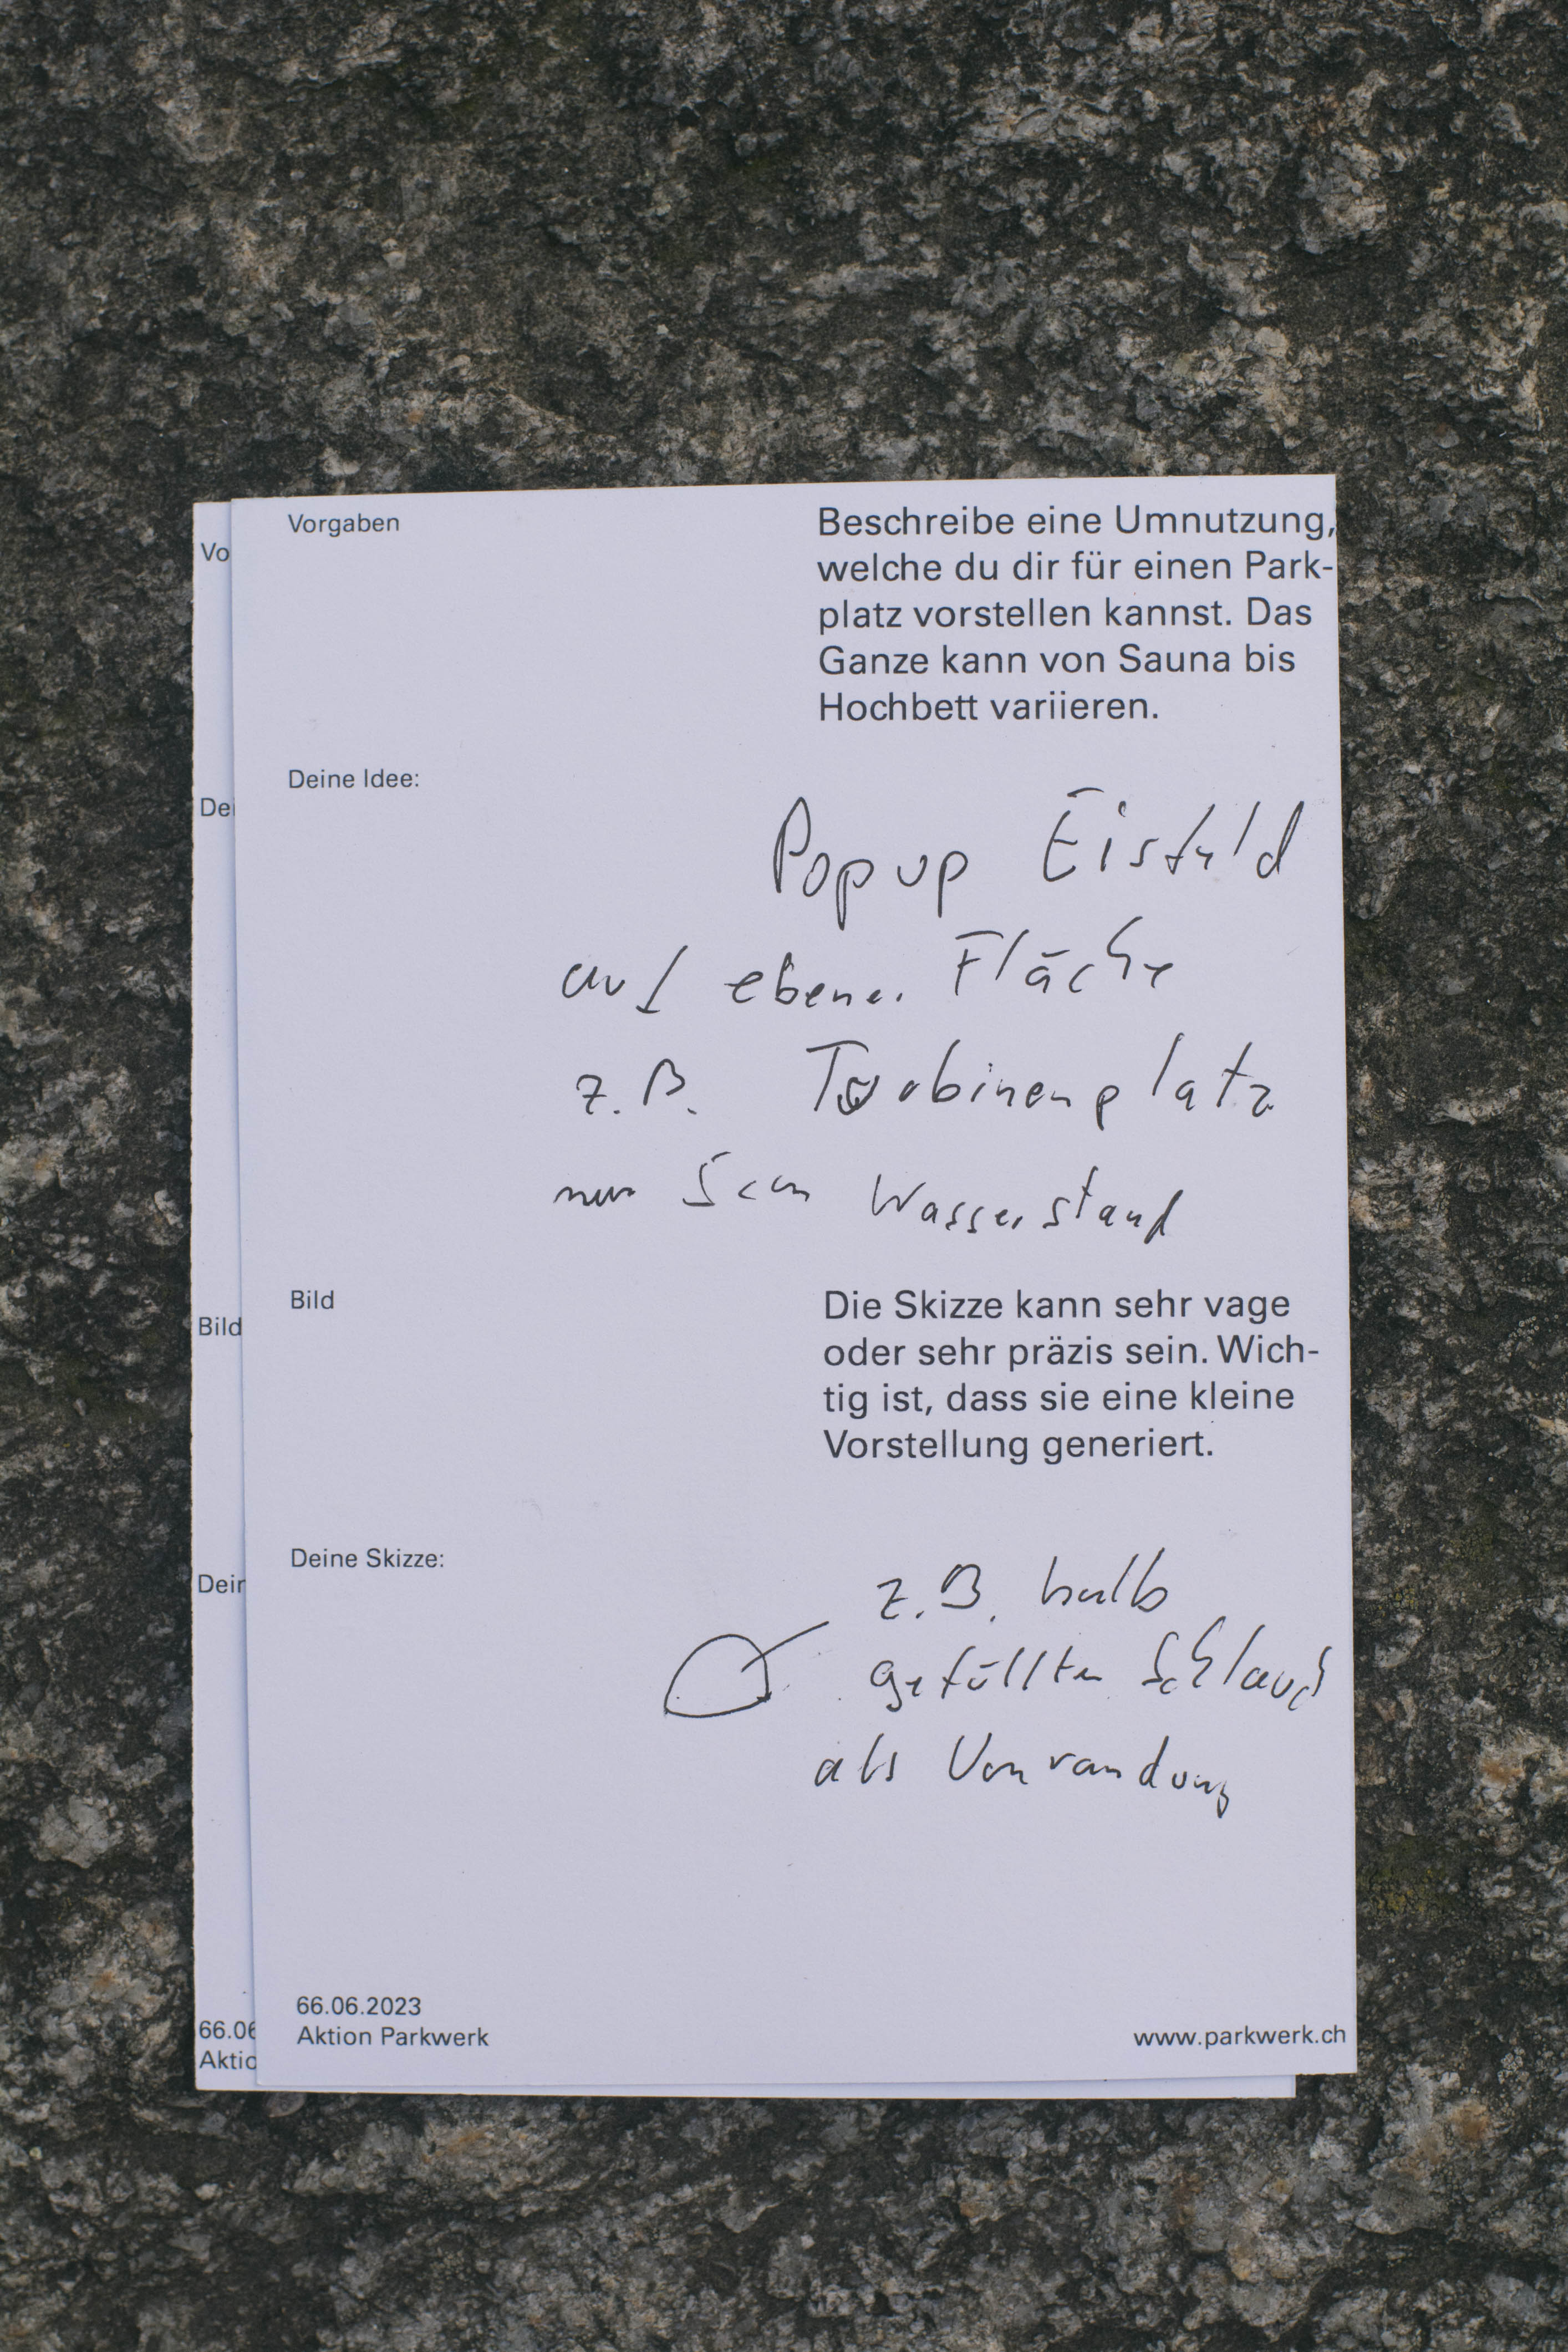 Vorgaben
Beschreibe eine Umnutzung,
welche du dir für einen Park-
platz vorstellen kannst. Das
Ganze kann von Sauna bis
Hochbett variieren.
Deine Idee:
Popup Eisfeld
auf ebener Fläche
z.B. Turbinenplatz
nur 5cm Wasserstand
Bild
Die Skizze kann sehr vage
oder sehr präzis sein. Wich-
tig ist, dass sie eine kleine
Vorstellung generiert.
Deine Skizze:
z.B. halb
gefüllten Schlauch
als
66.06.2023
Aktion Parkwerk
www.parkwerk.ch
Vo
De
Bild
Dein
66.06
Aktio